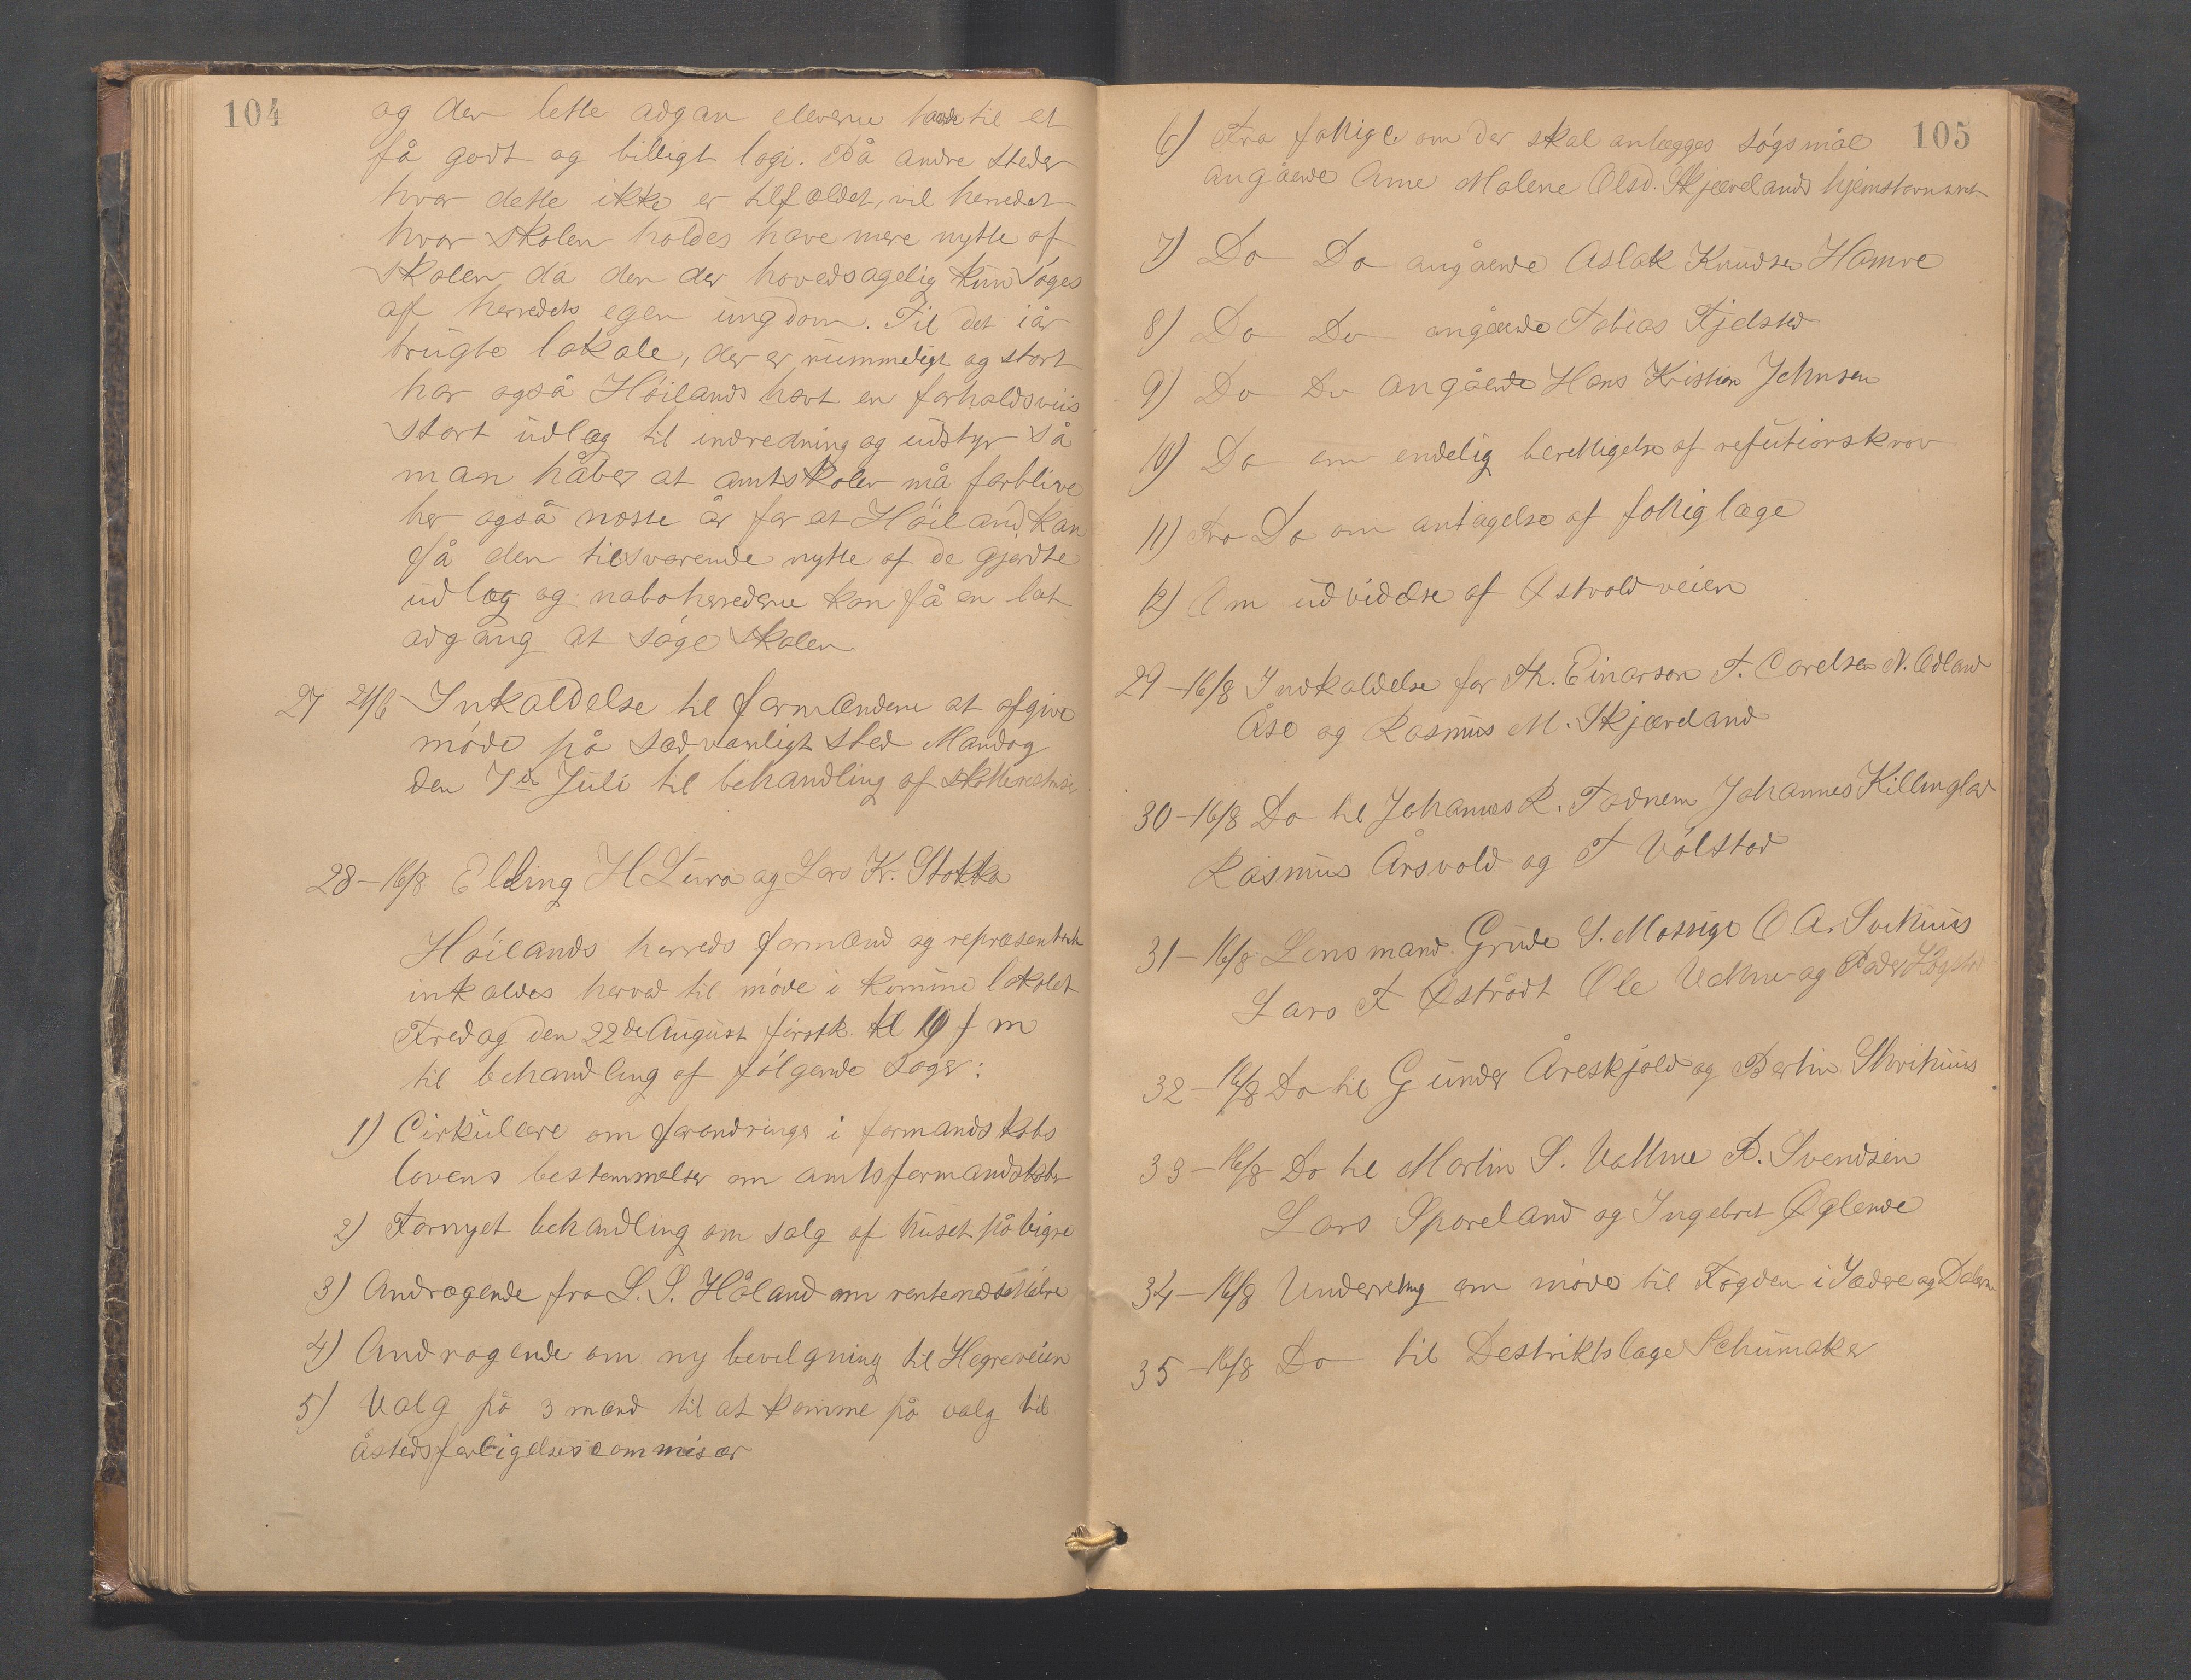 104
og den lette adgan eleverne havde til et
få godt og billigt logi. På andre steder
hvor dette ikke er tilfældet, vil herredet
hvor skolen holdes have mere nytte af
skolen da den der hovedsagelig kun søges
af herredets egen ungdom. Til det iår
brugte lokale, der er rummeligt og stort
har også Høilands havt en forholdsviis
stort udlæg til indredning og udstyr så
man håber at amtskolen må forblive
her også næste år for at Høiland kan
få den tilsvarende nytte af de gjordte
udlæg og naboherrederne kan få en let
adgang at søge skolen
27 21/6 Inkaldelse til formændene at afgive
møde på sædvanligt sted Mandag
den 7de Juli til behandling af
28 - 16/8 Elling H Lura og Lars Kr. Stokka
Høilands herreds formænd og repræsentant
inkaldes herved til møde i komune lokalet
Fredag den 22de August førstk. kl 10 f m
til behandling af følgende sager:
1) Cirkulære om forandringer i formandskabs
lovens bestemmelser om amtsformandskabet
2) Fornyet behandling om salg af huset på
3) Andragende fra L. S. Håland om rentenedsættelse
4) Andragende om ny bevilgning til Hegreveien
5) Valg på 3 mænd til at komme på valg til
åstedsforligelsescommisær
105
6) Fra fattigc om der skal anlægges søgsmål
angående Ane Malene Olsd. Skjævelands hjemstavnsret
7) Do Do angående Aslak Knudsen Hamre
8) Do Do angående Tobias Fjelsted
9) Do Do angående Hans Kristian Johnsen
10) Do om endelig berettigelse af refutionskrav
11) Fra Do om antagelse af fattiglæge
12) Om udvidelse af Østvoldveien
29 - 16/8 Indkaldelse for Th. Einarsen T. Carelsen N. Odland
Åse og Rasmus M. Skjæveland
30 - 16/8 Do til Johannes R. Tadnem Johannes Killinglad
Rasmus Årsvold og T Vølstad
31 - 16/8 Lensmand Grude S. Mossige O A. Svihuus
Lars T Østrådt Ole Vatne og Peder Høgstad
32 - 16/8 Do til Gunder Åreskjold og Bertin Skvihuus
33 - 16/8 Do til Martin S. Vatne P. Svendsen
Lars Sporeland og Ingebret Øglende
34 - 16/8 Underetning om møde til Fogden i Jædere og Dalerne
35 - 16/8 Do til Destriktslæge Schumaker